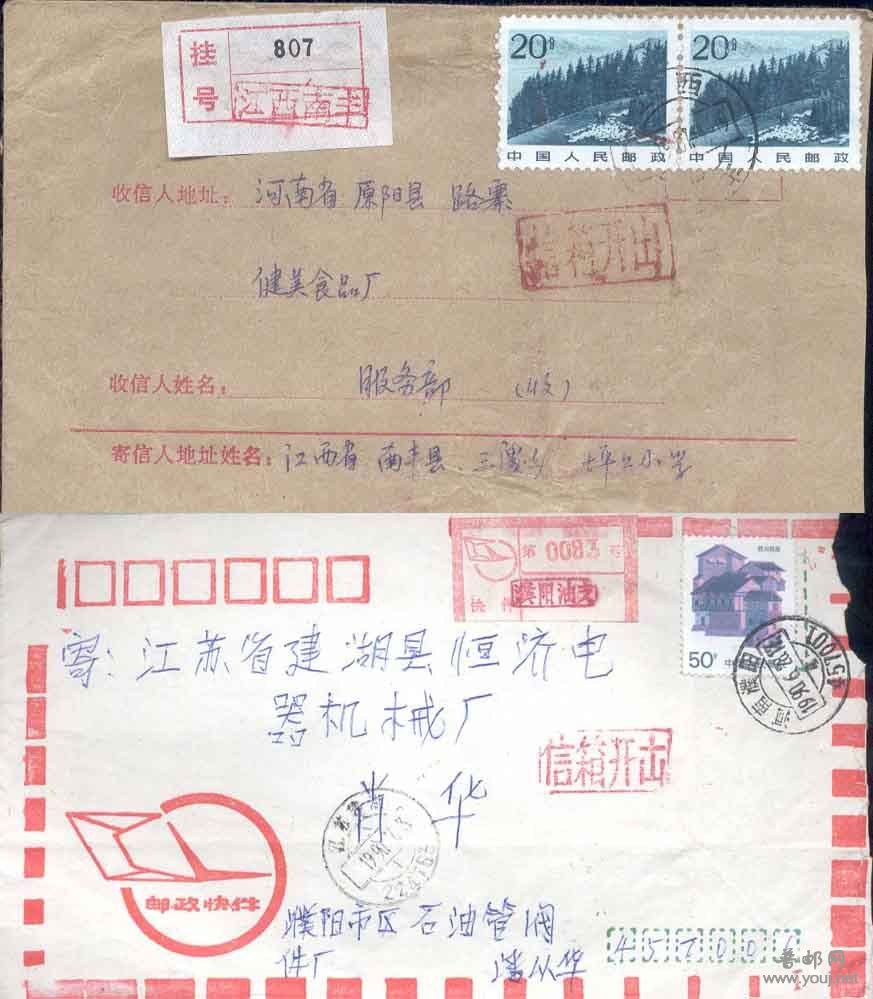 挂号
807
江西南丰
20分
20分
中国人民邮政
中国人民邮政
西
收信人地址:河南省 原阳县 路寨
信箱开出
健美食品厂
收信人姓名: 服务部 (收)
寄信人地址姓名:江西省 南丰县 小学
第 008 号
快件
濮阳油支
50分
寄:江苏省建湖县恒济电
器机械厂
457001
1990.6.28.18
河南濮阳
信箱开出
肖华
江苏
1990.7.3
224763
邮政快件
濮阳市区石油管阀
件厂 潘从华
457001
普邮网
www.youj.net